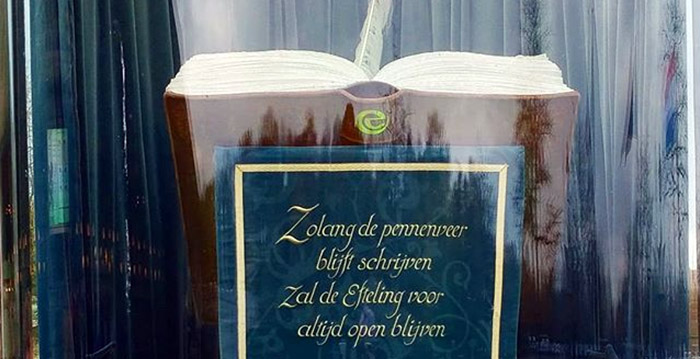 Zolang de pennenveer
blijft schrijven
Zal de Efteling voor
altijd open blijven